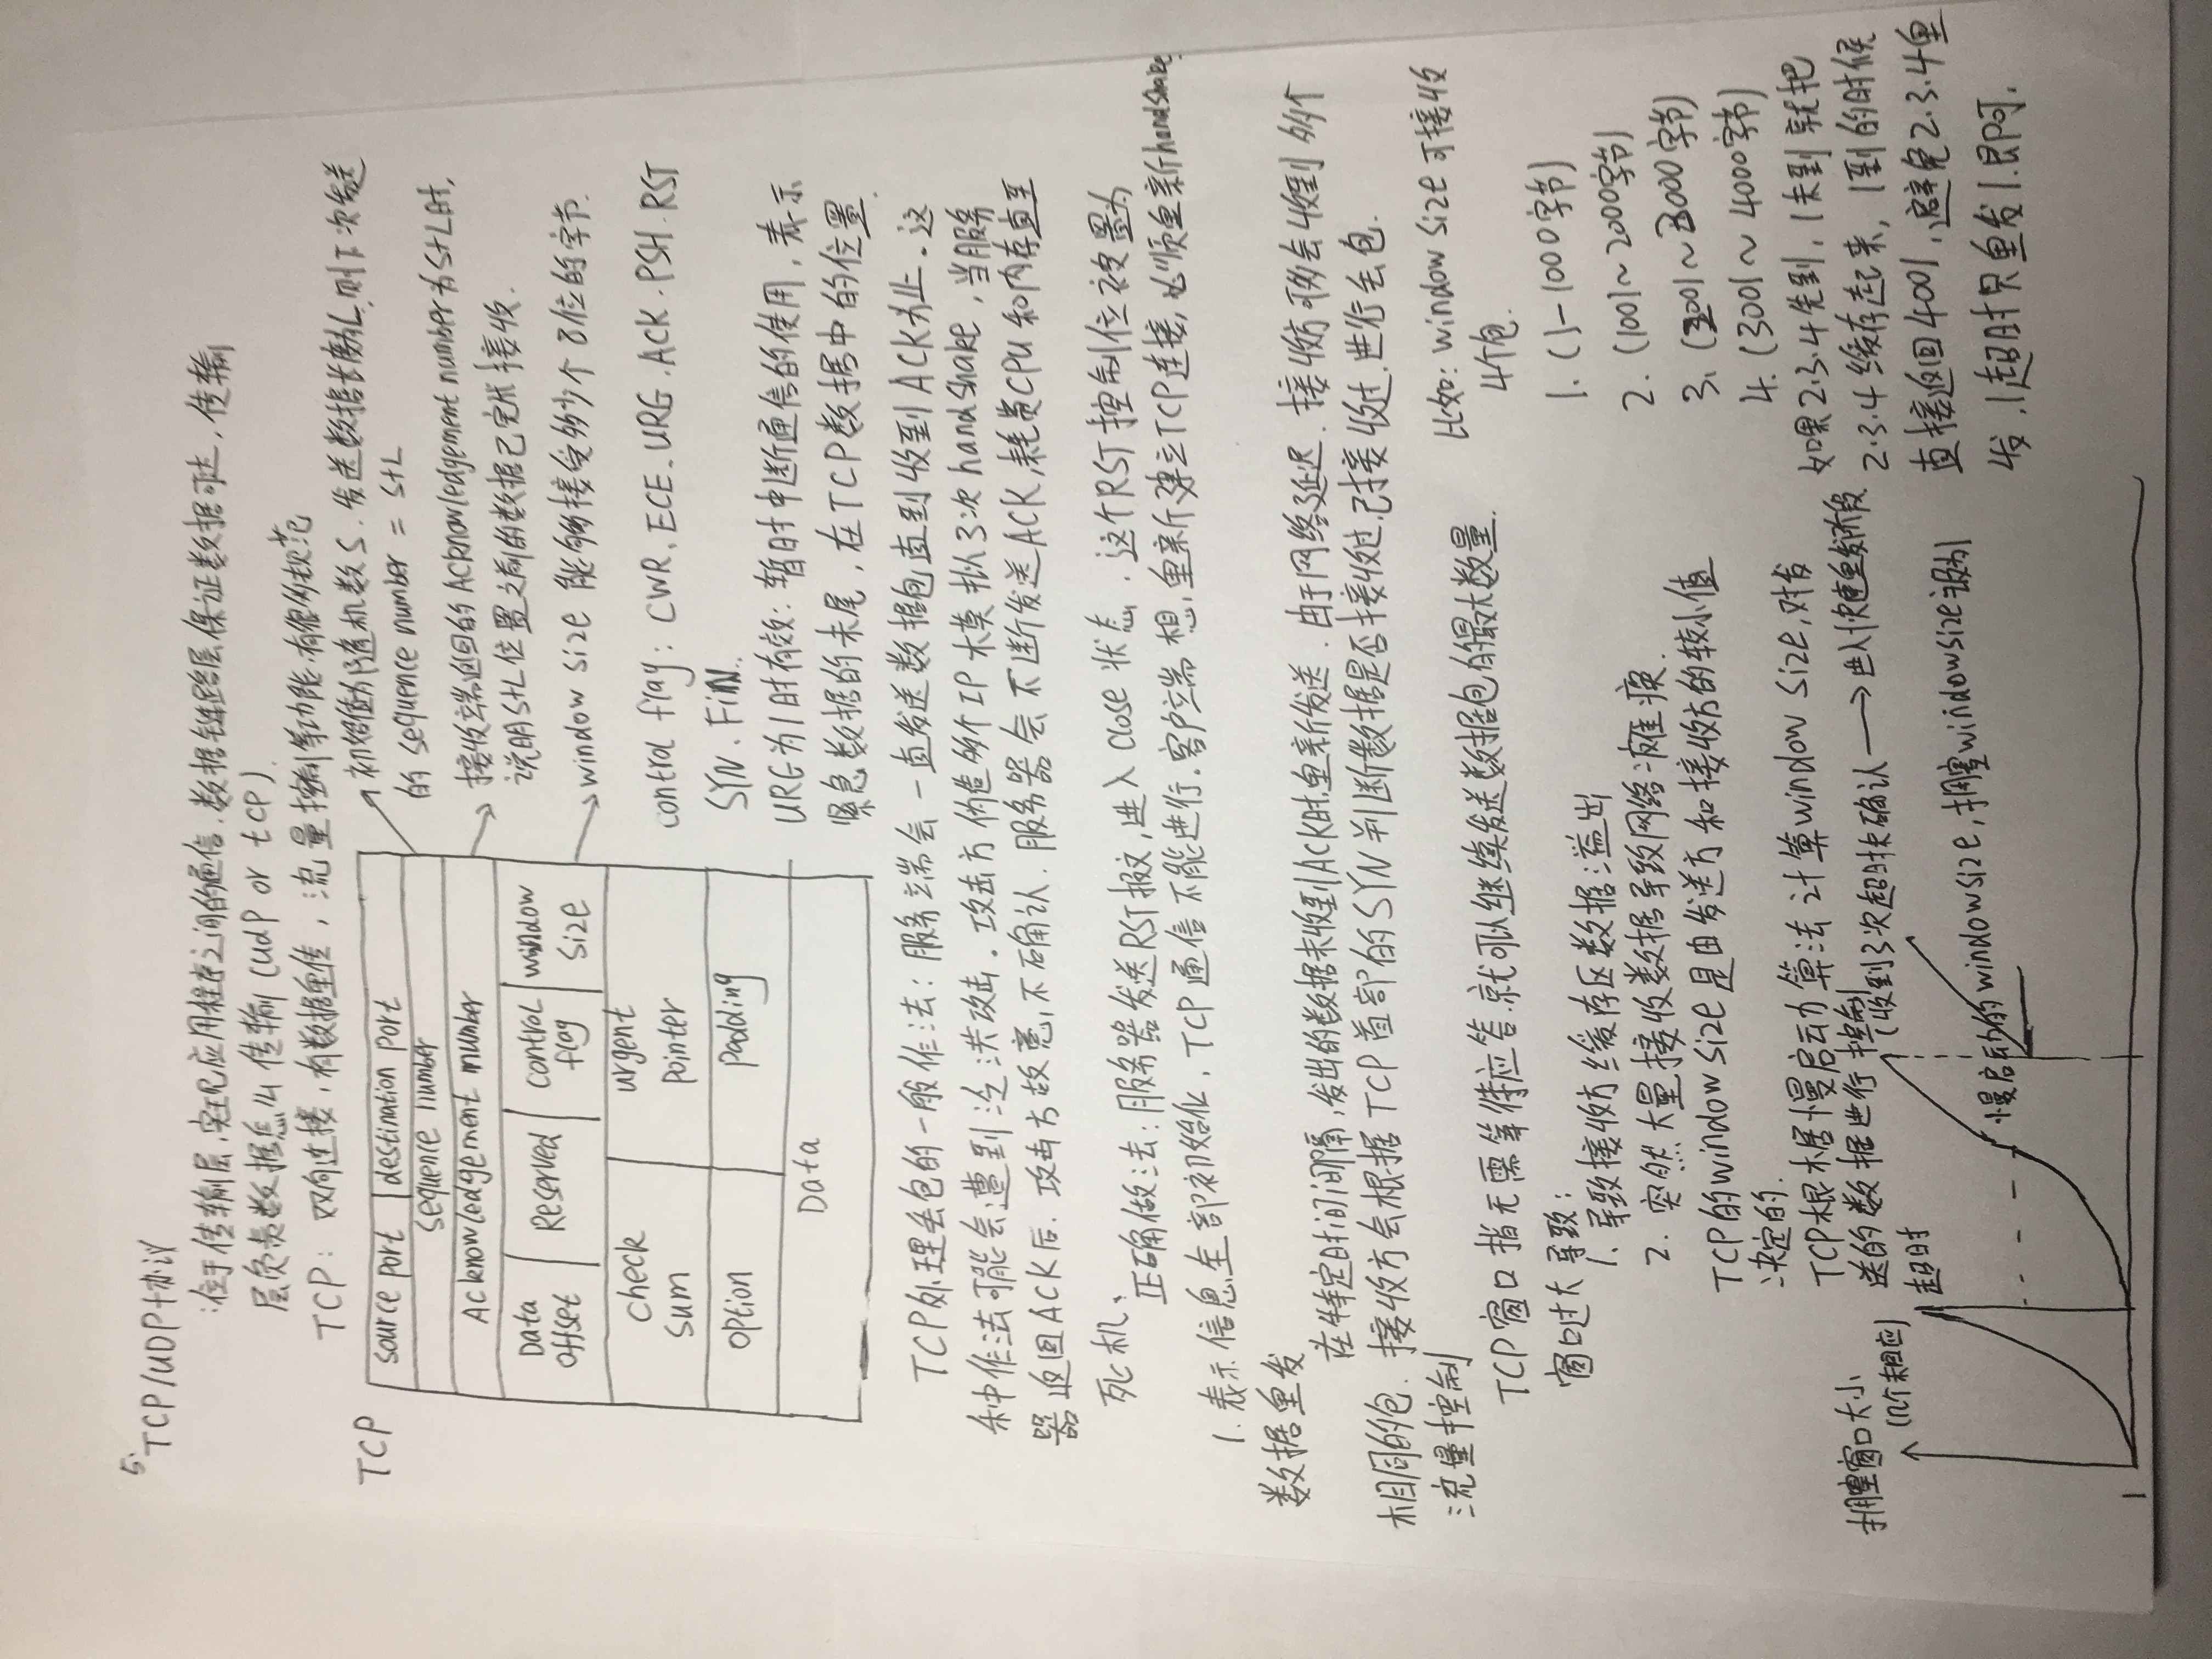 5.
TCP/UDP协议
:位于传输层,实现应用程序之间的通信.数据链路层保证数据可达,传输
层负责数据怎么传输(udp or tcp).
TCP: 双向连接,有数据重传,流量控制等功能.有很多规范
TCP
source port destination port
sequence number
Acknowledgement number
Data offset Reserved control flag window size
check sum urgent pointer
option Padding
Data
初始值为随机数S.发送数据长度为L,则下次发送
的 sequence number = S+L
接收端返回的Acknowledgement number为S+L时,
说明S+L位置之前的数据已完成接收.
window size 能够接受多少个8位的字节.
control flag: CWR.ECE.URG.ACK.PSH.RST
SYN.FiN.
URG为1时有效:暂时中断通信的使用,表示
紧急数据的末尾,在TCP数据中的位置.
TCP处理丢包的一般作法:服务端会一直发送数据包直到收到ACK为止.这
种作法可能会遭到泛洪攻击.攻击方伪造多个IP模拟3次handshake,当服务
器返回ACK后.攻击方故意不确认.服务器会不断发送ACK,耗费CPU和内存直至
死机.
正确做法:服务器发送RST报文,进入close状态.这个RST控制位被置为
1.表示信息全部初始化,TCP通信不能进行.客户端想重新建立TCP连接,必须重新handshake.
数据重发
在特定时间间隔,发出的数据未收到ACK时,重新发送.由于网络延迟.接收方可能会收到多个
相同的包.接收方会根据TCP首部的SYN判断数据是否接收过.已接收过.进行丢包.
流量控制
TCP窗口指无需等待应答.就可以继续发送数据包的最大数量.
窗口过大导致:
1.导致接收方缓存区数据溢出
2.突然大量接收数据导致网络瘫痪.
TCP的window size是由发送方和接收方的较小值
决定的.
TCP根据慢启动算法计算window size,对发
送的数据进行控制
比如: window size可接收
4个包.
1.(1-1000字节)
2.(1001~2000字节)
3.(2001~3000字节)
4.(3001~4000字节)
如果2.3.4先到,1未到就把
2.3.4缓存起来,1到的时候
直接返回4001,避免2.3.4重
发.1超时只重发1.即可.
拥塞窗口大小
超时
(收到3次超时块确认→进入快速重发阶段
慢启动的windowsize,拥塞windowsize设为1
1